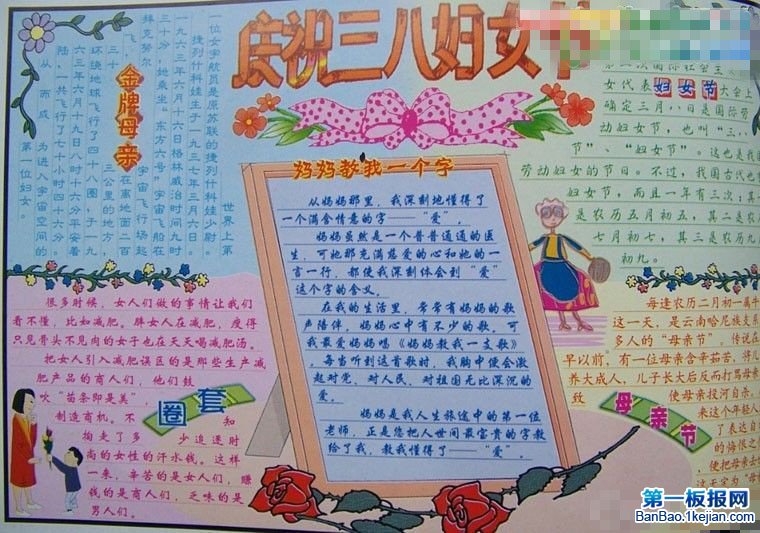 庆祝三八妇女节
金牌母亲
世界上第
一位女宇航员是原苏联的捷列什科娃少尉。
捷列什科娃生于一九三七年三月六日。
一九六三年六月十六日格林威治时间九时
三十分，她乘坐“东方六号”宇宙飞船在
拜克努尔宇宙飞行场起
飞，在离地面二百
三十三公里的地方，
环绕地球飞行了四十八圈，于一九
六三年六月十九日八时十六分平安着
陆，一共飞行了七十小时四十六分。
从而成为进入宇宙空间的
第一位妇女。
妈妈教我一个字
从妈妈那里，我深刻地懂得了
一个满含情意的字——“爱”。
妈妈虽然是一个普普通通的医
生，可她那充满慈爱的心和她的一
言一行，都使我深刻体会到“爱”
这个字的含义。
在我的生活里，常常有妈妈的歌
声陪伴，妈妈心中有不少的歌。可
我最爱妈妈唱《妈妈教我一支歌》
。每当听到这首歌时，我胸中便会激
起对党、对人民、对祖国无比深沉的
爱。
妈妈是我人生旅途中的第一位
老师，正是您把人世间最宝贵的字教
给了我，教我懂得了——“爱”。
女代表妇女节大会上
确定三月八日是国际劳
动妇女节，也叫“三八
节”、“妇女节”。这也是我
劳动妇女的节日。不过，我国古代也
妇女节，而且一年有三次：其
是农历五月初五，其二是农
七月初七，其三是农历九
初九。
圈套
很多时候，女人们做的事情让我们
看不懂，比如减肥。胖女人在减肥，瘦得
只见骨头不见肉的女子也在天天喝减肥汤。
把女人引入减肥误区的是那些生产减
肥产品的商人们，他们鼓
吹“苗条即是美”，
制造商机。不知
掏走了多少追逐时
尚的女性的汗水钱。这样
一来，辛苦的是女人们，赚
钱的是商人们，乏味的是
男人们。
母亲节
每逢农历二月初一属牛
这一天，是云南哈尼族支系
多人的“母亲节”。传说在
早以前，有一位母亲含辛茹苦，将儿
养大成人，儿子长大后反而打骂母亲
致使母亲投河自杀。
来这个年轻人
了表达自
的悔恨之
便把母亲去
这天定为“母
第一板报网
BanBao.1kejian.com